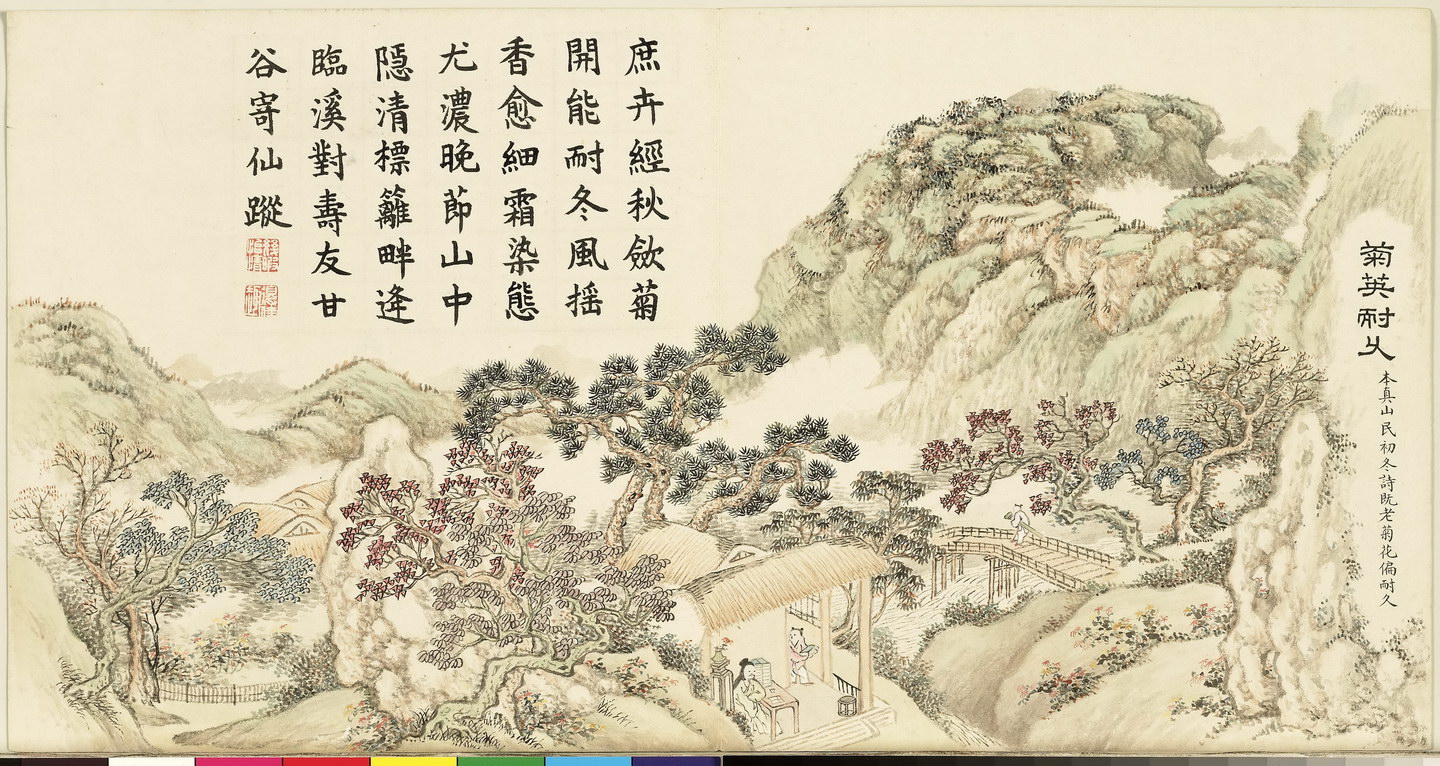 菊英耐久
本真山民初冬詩既老菊花偏耐久
庶卉經秋歛菊
開能耐冬風搖
香愈細霜染態
尤濃晚節山中
隱清標籬畔逢
臨溪對壽友甘
谷寄仙蹤